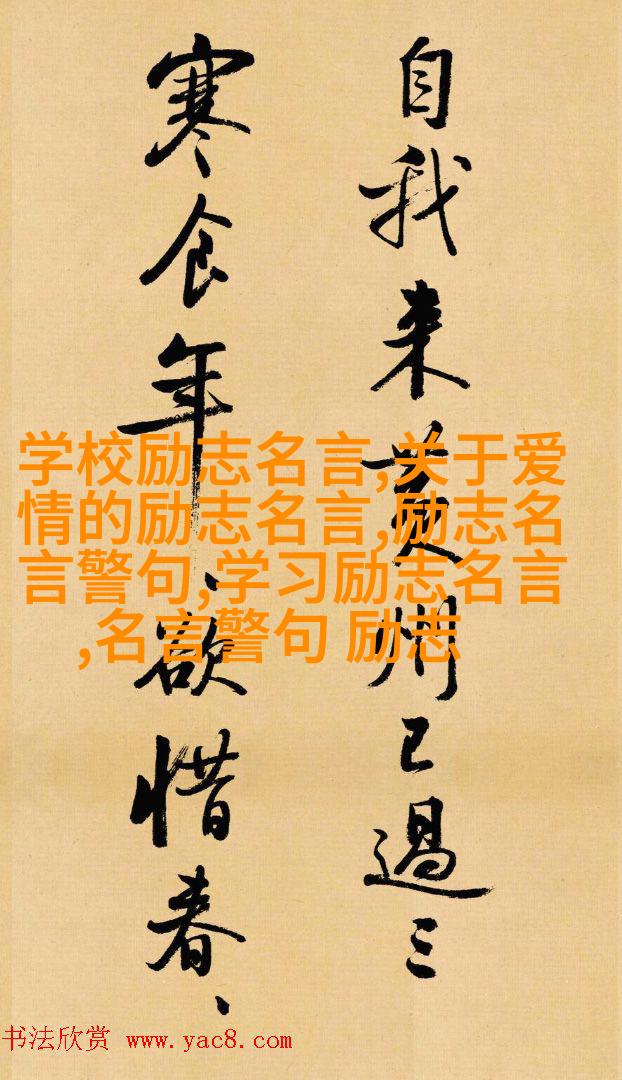 自我来黄州已過三
寒食年、欲惜春、
学校励志名言,关于爱
情的励志名言,励志名
言警句,学习励志名言
,名言警句 励志
书法欣赏 www.yac8.com